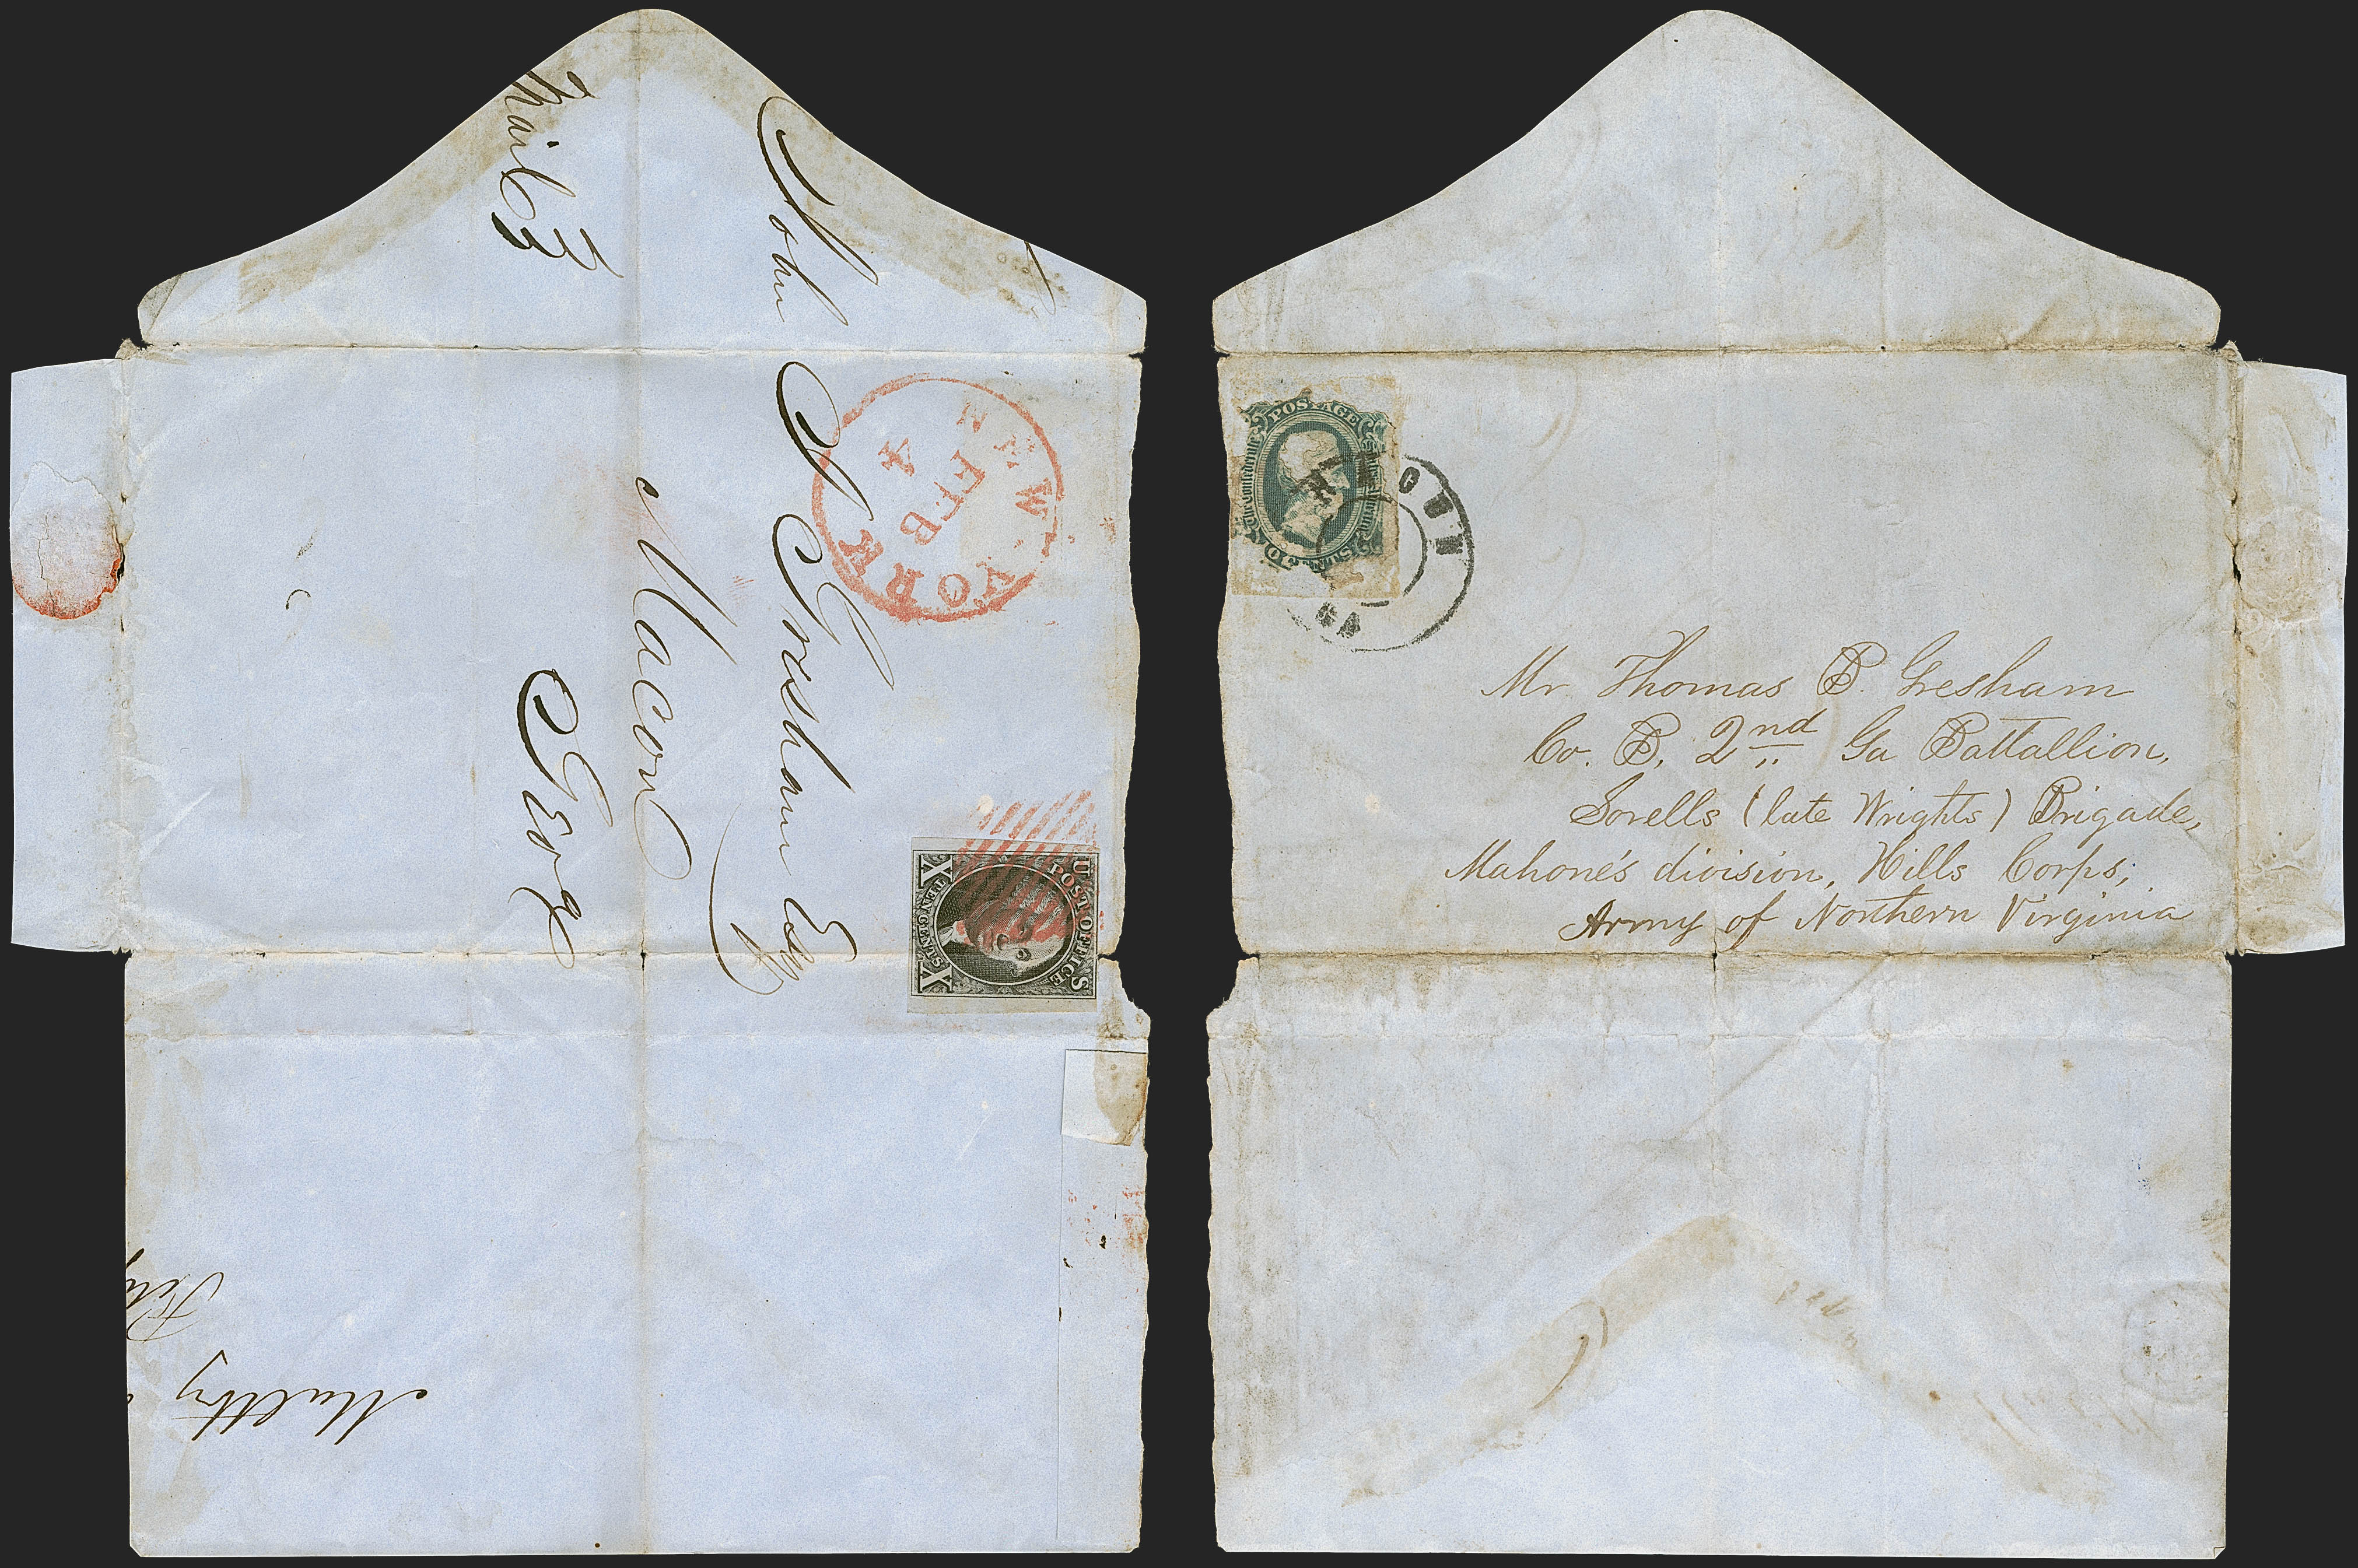 Mail 3
John J Gresham Esq
Macon
Geoa
NEW YORK
FEB
4
POST OFFICE
U S
X TEN CENTS X
Maltby
POSTAGE
The Confederate States of America
GA
Mr Thomas B. Gresham
Co. B, 2nd Ga Battallion,
Sorells (late Wrights) Brigade,
Mahone's division, Hills Corps;
Army of Northern Virginia